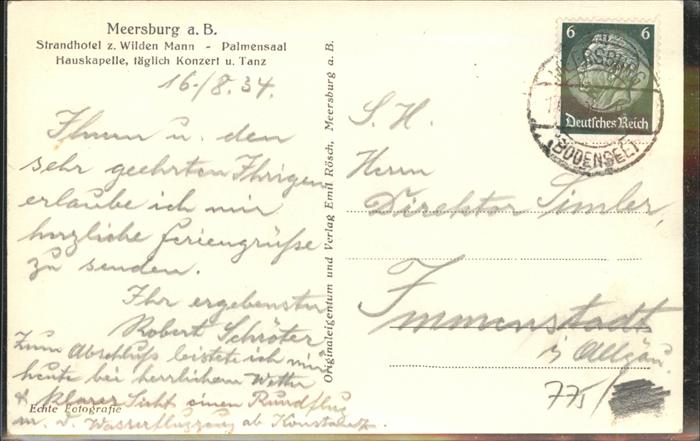 Meersburg a. B.
Strandhotel z. Wilden Mann - Palmensaal
Hauskapelle, täglich Konzert u. Tanz
16./8.34.
Ihnen u. den
sehr geehrten Ihrigen
erlaube ich mir
herzliche Feriengrüße
zu senden.
Ihr ergebenster
Robert Schröter
Zum Abschluß leistete ich mir
heute bei herrlichem Wetter
& klarer Sicht einen Rundflug
m. d. Wasserflugzeug ab Konstanz.
Echte Fotografie
Originaleigentum und Verlag Emil Rösch, Meersburg a. B.
6 6
Deutsches Reich
MEERSBURG
(BODENSEE)
S. H.
Herrn
Direktor Simler,
Immenstadt
i/ Allgäu.
775